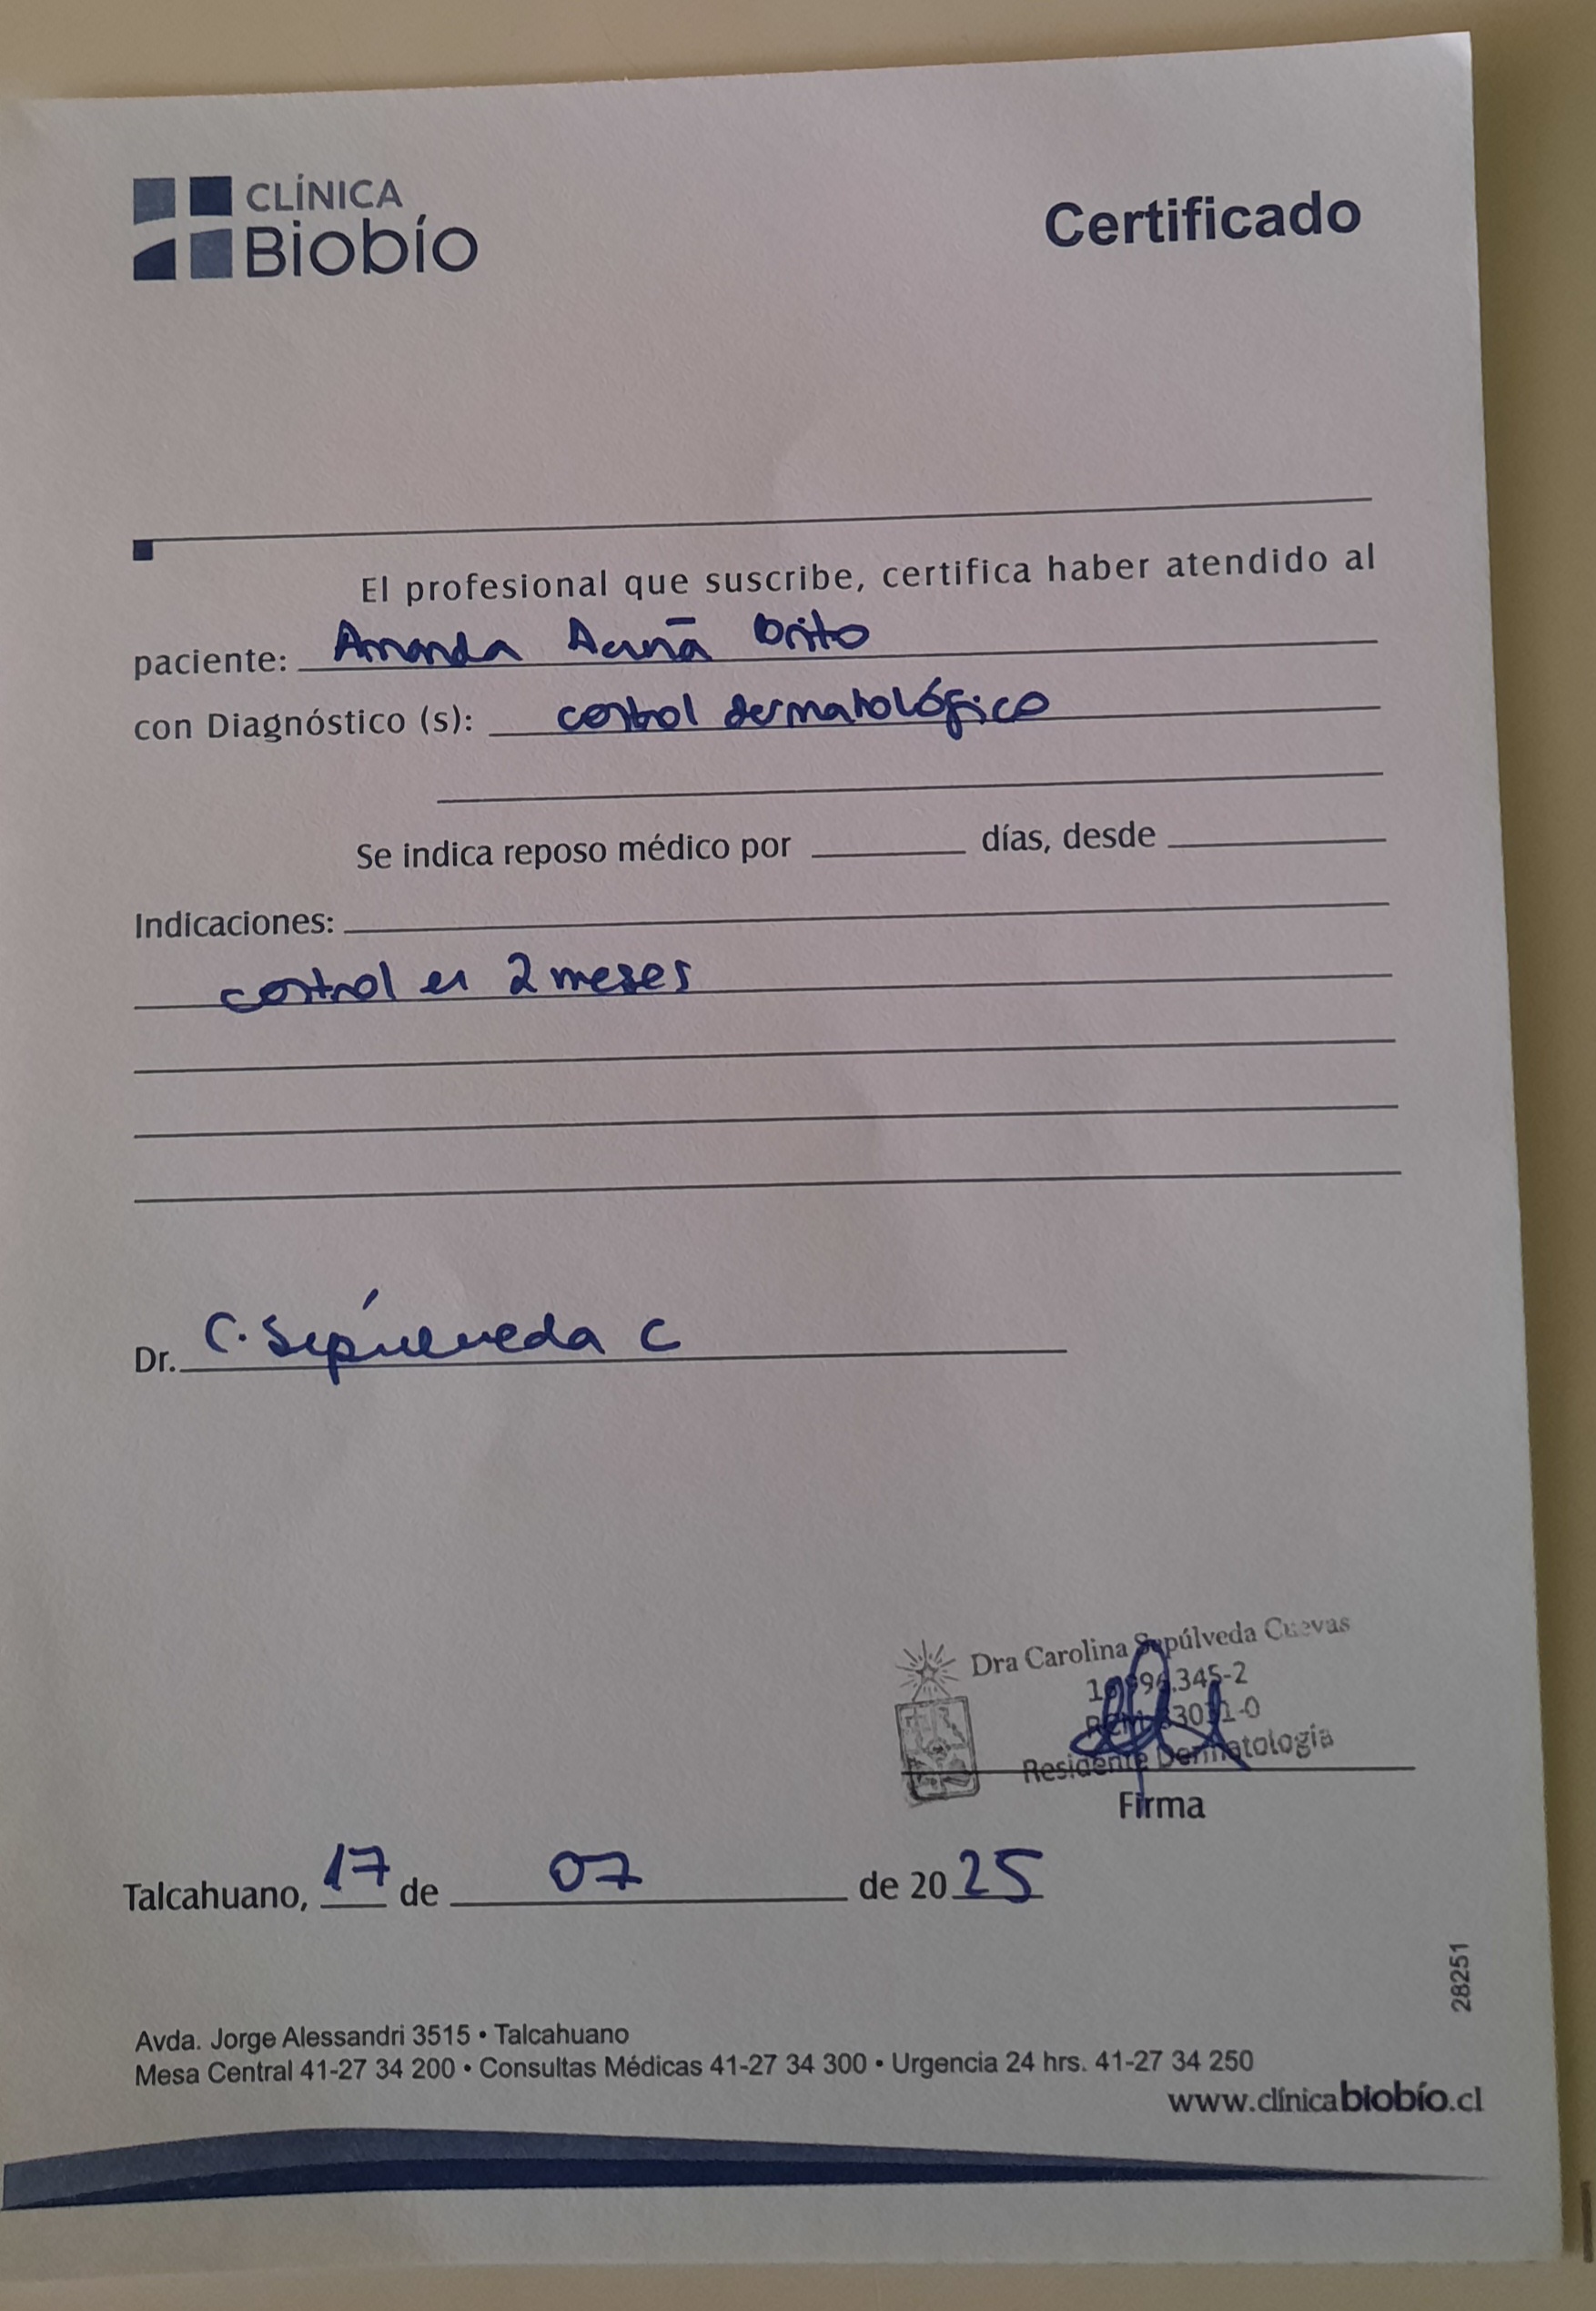 CLÍNICA
Biobío
Certificado
El profesional que suscribe, certifica haber atendido al
paciente: Amanda Acuña Brito
con Diagnóstico (s): control dermatológico
Se indica reposo médico por ________ días, desde ________
Indicaciones:
control en 2 meses
Dr. C. Sepúlveda C
Dra Carolina Sepúlveda Cuevas
Residente Dermatología
Firma
Talcahuano, 17 de 07 de 2025
28251
Avda. Jorge Alessandri 3515 • Talcahuano
Mesa Central 41-27 34 200 • Consultas Médicas 41-27 34 300 • Urgencia 24 hrs. 41-27 34 250
www.clínicabiobío.cl